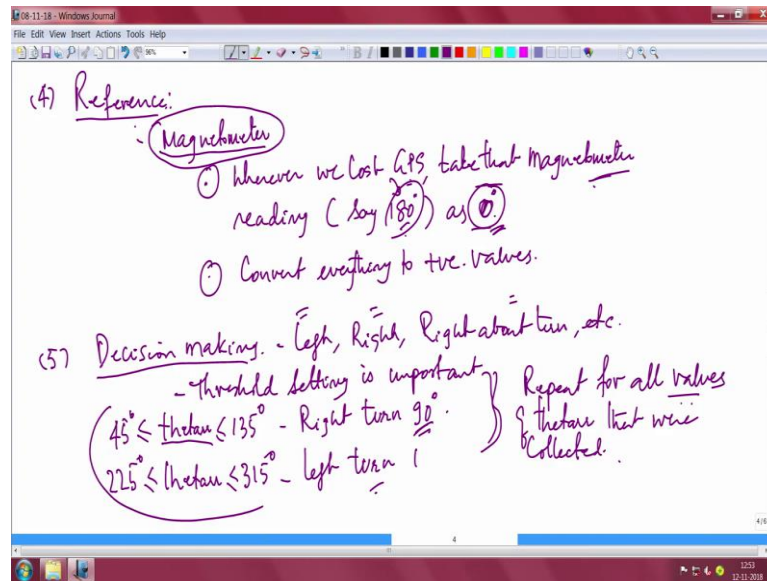 08-11-18 - Windows Journal
File Edit View Insert Actions Tools Help
96%
(4) Reference:
Magnetometer
Wherever we lost GPS, take that magnetometer
reading (say 180°) as 0°
Convert everything to +ve. values.
(5) Decision making. - Left, Right, Right about turn, etc.
- Threshold setting is important
45° ≤ thetan ≤ 135° - Right turn 90°.
225° ≤ thetan ≤ 315° - left turn
Repeat for all values
thetan that were
Collected.
4
4/6
12:53
12-11-2018